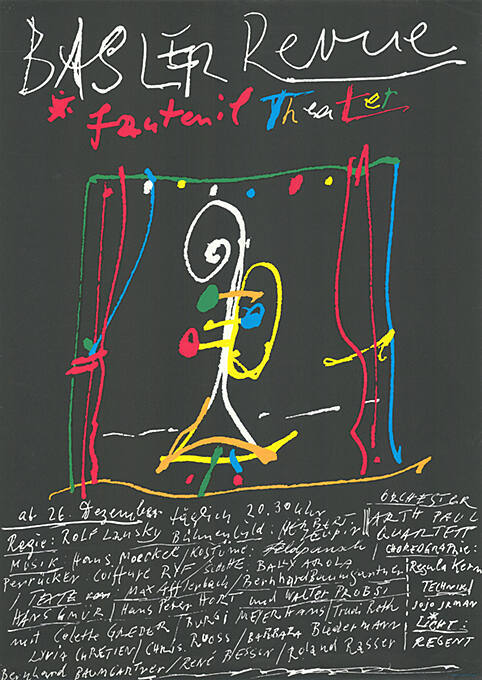 BASLER Revue
* fauteuil Theater
ab 26. Dezember täglich 20.30 Uhr
Regie: ROLF LANSKY Bühnenbild: HERBERT
MUSIK Hans Moeckel / KOSTÜME:
Perrücken: Coiffure RYF / SCHUHE: BALLY AROLA
/ TEXTE von / MAX Afflerbach / Bernhard Baumgartner
HANS GMÜR / Hans Peter HORT und WALTER PROBST
mit Colette GREDER / BURGI MEYER Hans / Trudi Roth
LYVIA CHRETIEN / CHRIS. ROOSS / BARBARA
Bernhard BAUMGARTNER / RENÉ BESSON / Roland Rasser
ORCHESTER
ARTH PAUL
QUARTETT
/ CHOREOGRAPHIE:
Regula Kern
TECHNIK /
LICHT:
REGENT